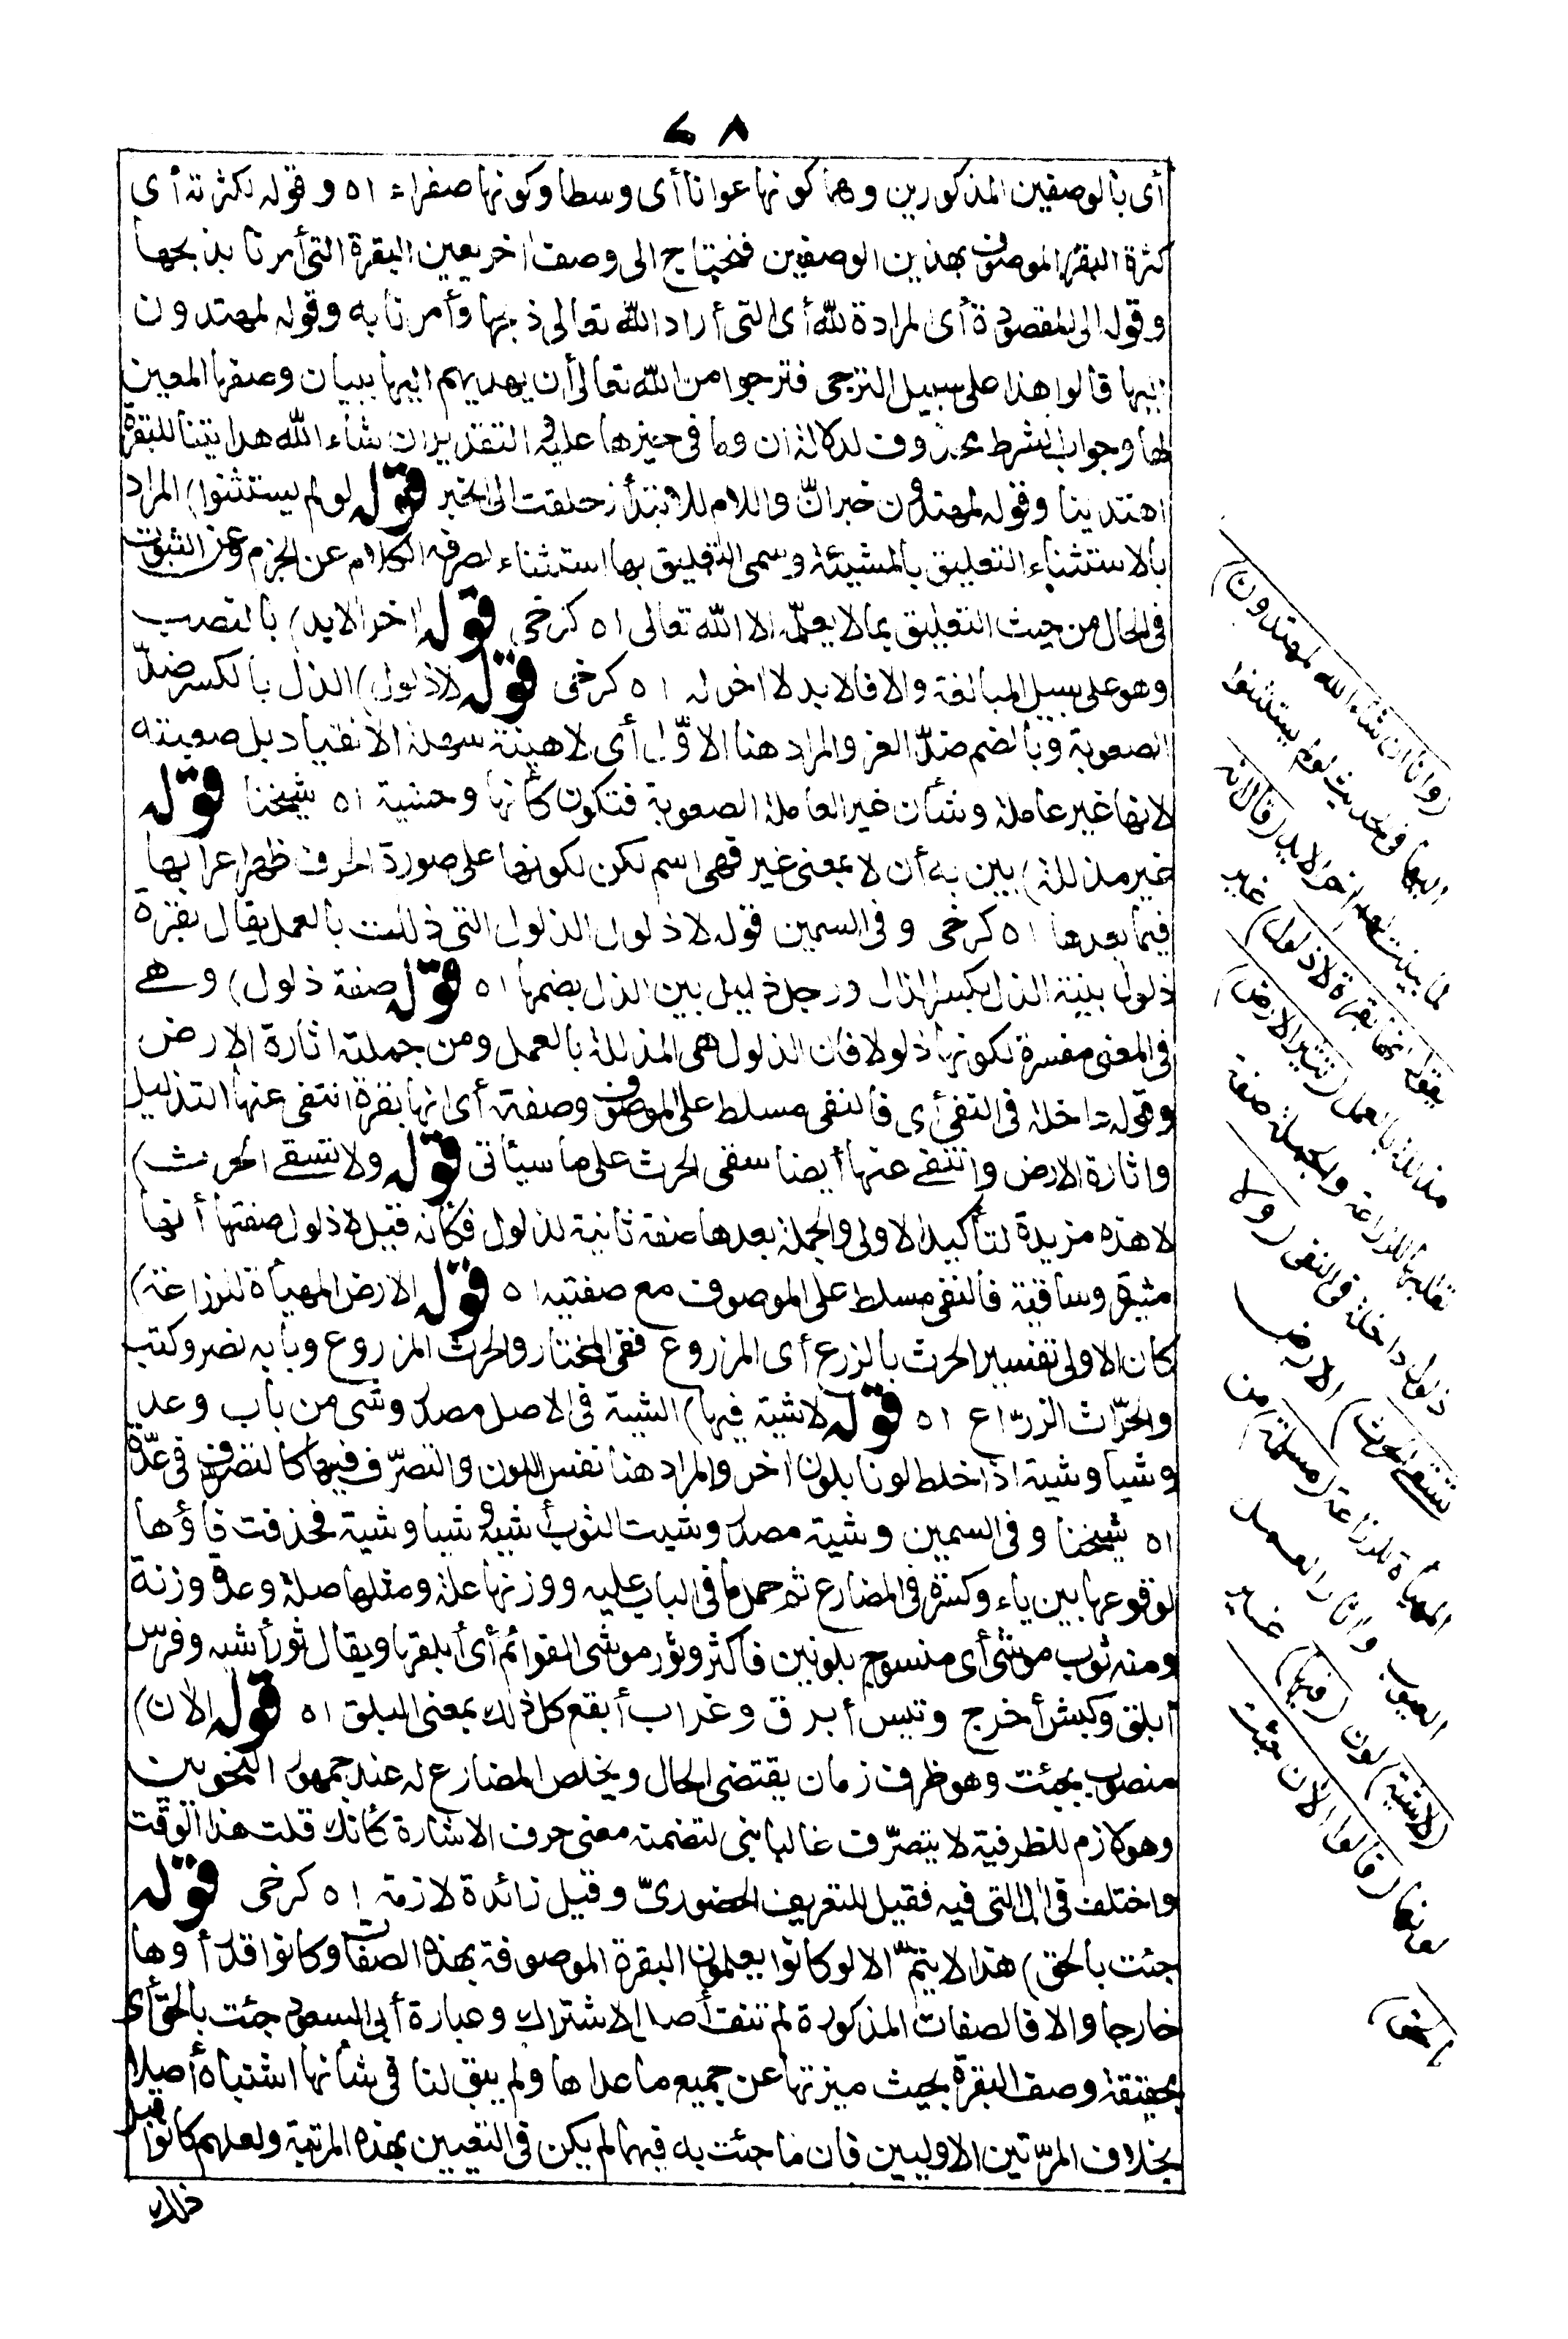 ٦٨
أى بالوصفين المذكورين وهما كونها عوانا أى وسطا وكونها صفراء اه وقوله لكثرته أى
كثرة البقر الموصوف بهذين الوصفين فنحتاج الى وصف اخر يعين البقرة التى أمرنا بذبحها
وقوله الى المقصودة أى المرادة لله أى التى أراد الله تعالى ذبحها وأمرنا به وقوله لمهتدون
اليها قالوا هذا على سبيل الترجى فترجوا من الله تعالى أن يهديهم اليها ببيان وصفها المعين
لها وجواب الشرط محذوف لدلالة ان وما فى حيزها عليه والتقدير ان شاء الله هدايتنا للبقرة
اهتدينا وقوله لمهتدون خبر انّ واللام للابتداء زحلقت الى الخبر قوله لو لم يستثنوا) المراد
بالاستثناء التعليق بالمشيئة وسمى التعليق بها استثناء لصرفه الكلام عن الجزم وعن الثبوت
فى الحال من حيث التعليق بما لا يعلمه الا الله تعالى اه كرخى قوله اخر الابد) بالنصب
وهو على سبيل المبالغة والا فالابد لا اخر له اه كرخى قوله لا ذلول) الذل بالكسر ضدّ
الصعوبة وبالضم ضدّ العز والمراد هنا الاوّل أى لا هينة سهلة الانقياد بل صعبته
لانها غير عاملة وشأن غير العاملة الصعوبة فتكون كأنها وحشية اه شيخنا قوله
غير مذللة) بين به أن لا بمعنى غير فهى اسم لكن لكونها على صورة الحرف ظهر اعرابها
فيما بعدها اه كرخى وفى السمين قوله لا ذلول الذلول التى ذللت بالعمل يقال بقرة
ذلول بينة الذل بكسر الذال ورجل ذليل بين الذل بضمها اه قوله صفة ذلول) وهى
فى المعنى مفسرة لكونها ذلولا فان الذلول هى المذللة بالعمل ومن جملته اثارة الارض
وقوله داخلة فى النفى أى فالنفى مسلط على الموصوف وصفته أى انها بقرة انتفى عنها التذليل
واثارة الارض وانتفى عنها أيضا سقى الحرث على ما سيأتى قوله ولا تسقى الحرث)
لا هذه مزيدة لتأكيد الاولى والجملة بعدها صفة ثانية لذلول فكأنه قيل لا ذلول صفتها أنها
مثيرة وساقية فالنفى مسلط على الموصوف مع صفتيه اه قوله الارض المهيأة للزراعة)
كان الاولى تفسير الحرث بالزرع أى المزروع ففى المختار والحرث المزروع وبابه نصر وكتب
والحرّاث الزرّاع اه قوله لا شية فيها) الشية فى الاصل مصدر وشى من باب وعد
وشيا وشية اذا خلط لونا بلون اخر والمراد هنا نفس اللون والتصرّف فيها كالتصرف فى عدّة
اه شيخنا وفى السمين وشية مصدر وشيت الثوب أشيه وشيا وشية فحذفت فاؤها
لوقوعها بين ياء وكسرة فى المضارع ثم حمل ما فى الباب عليه ووزنها علة ومثلها صلة وعدة وزنة
ومنه ثوب موشى أى منسوج بلونين فأكثر وثور موشى القوائم أى أبلقها ويقال ثور أشيه وفرس
أبلق وكبش أخرج وتيس أبرق وغراب أبقع كل ذلك بمعنى البلق اه قوله الان)
منصوب بجئت وهو ظرف زمان يقتضى الحال ويخلص المضارع له عند جمهور النحويين
وهو لازم للظرفية لا يتصرّف غالبا بنى لتضمنه معنى حرف الاشارة كأنك قلت هذا الوقت
واختلف فى ال التى فيه فقيل للتعريف الحضورىّ وقيل زائدة لازمة اه كرخى قوله
جئت بالحق) هذا لا يتمّ الا لو كانوا يعلمون البقرة الموصوفة بهذه الصفات وكانوا قد رأوها
خارجا والا فالصفات المذكورة لم تنف أصل الاشتراك وعبارة أبى السعود جئت بالحق أى
بحقيقة وصف البقرة بحيث ميزتها عن جميع ما عداها ولم يبق لنا فى شأنها اشتباه أصلا
بخلاف المرّتين الاوليين فان ما جئت به فيهما لم يكن فى التعيين بهذه المرتبة ولعلهم كانوا قبل
ذلك
(وانا ان شاء الله لمهتدون)
اليها وفى الحديث لو لم يستثنوا
لما بينت لهم اخر الابد (قال انه
يقول انها بقرة لا ذلول) غير
مذللة بالعمل (تثير الارض)
تقلبها للزراعة والجملة صفة
ذلول داخلة فى النفى (ولا
تسقى الحرث) الارض
المهيأة للزراعة (مسلمة) من
العيوب واثار العمل
(لا شية) لون (فيها) غير
لونها (قالوا الان جئت
بالحق)